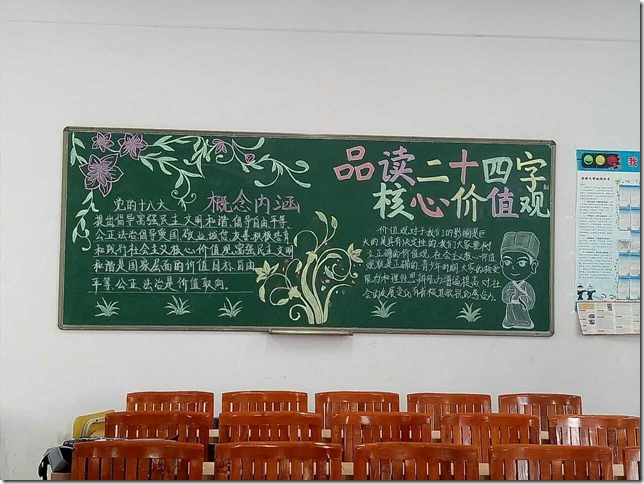 品读二十四字
核心价值观
概念内涵
党的十八大
提出倡导富强民主文明和谐,倡导自由平等、
公正法治倡导爱国敬业诚信友善积极培育
和践行社会主义核心价值观,富强民主文明
和谐是国家层面的价值目标,自由
平等公正法治是价值取向。
价值观对于我们的影响是巨
大的是具有决定性的,我们大家要树
立正确的价值观,社会主义核心价值
观就是正确的,青少年时期大家的接受
能力和理性思辨能力普遍提高对社
会的发展变化有着极其敏锐的感知力。
我